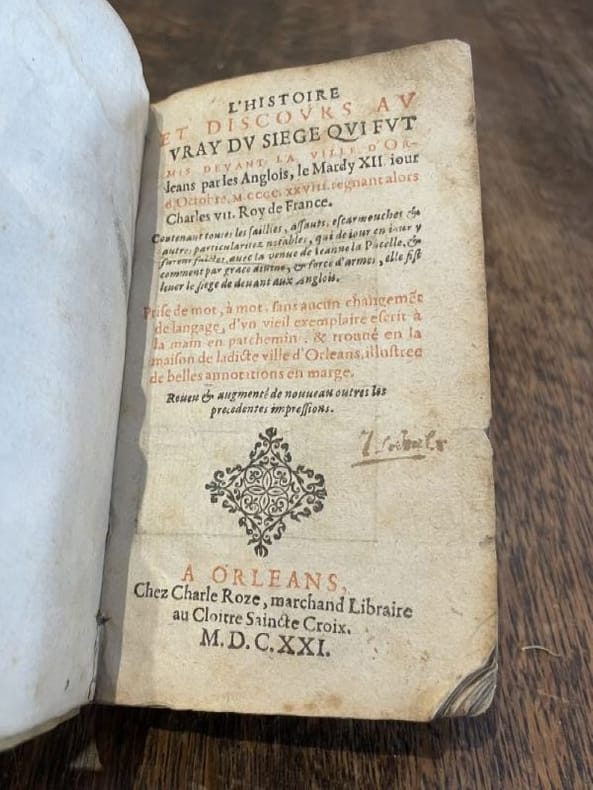 L'HISTOIRE
ET DISCOVRS AV
VRAY DV SIEGE QVI FVT
MIS DEVANT LA VILLE D'OR-
leans par les Anglois, le Mardy XII. iour
d'Octobre. M. CCCC. XXVIII. regnant alors
Charles VII. Roy de France.
Contenant toutes les saillies, assauts, escarmouches &
autres particularitez notables, qui de iour en iour y
furent faictes, avec la venue de Ieanne la Pucelle, &
comment par grace diuine, & force d'armes, elle fist
leuer le siege de deuant aux Anglois.
Prise de mot, à mot, sans aucun changemẽt
de langage, d'vn vieil exemplaire escrit à
la main en parchemin: & trouué en la
maison de ladicte ville d'Orleans, illustree
de belles annotitions en marge.
Reueu & augmenté de nouueau outres les
precedentes impressions.
A ORLEANS,
Chez Charle Roze, marchand Libraire
au Cloitre Saincte Croix.
M. D. C. XXI.